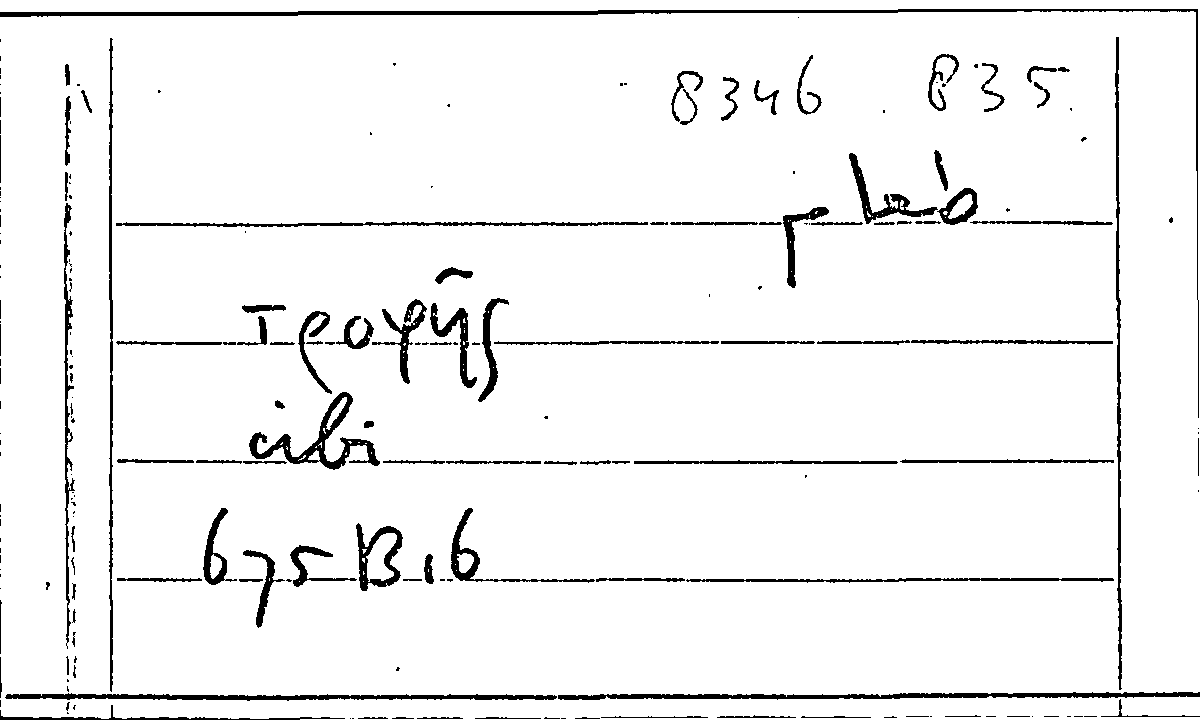 8346 835
τροφῆς
cibi
675 B 16